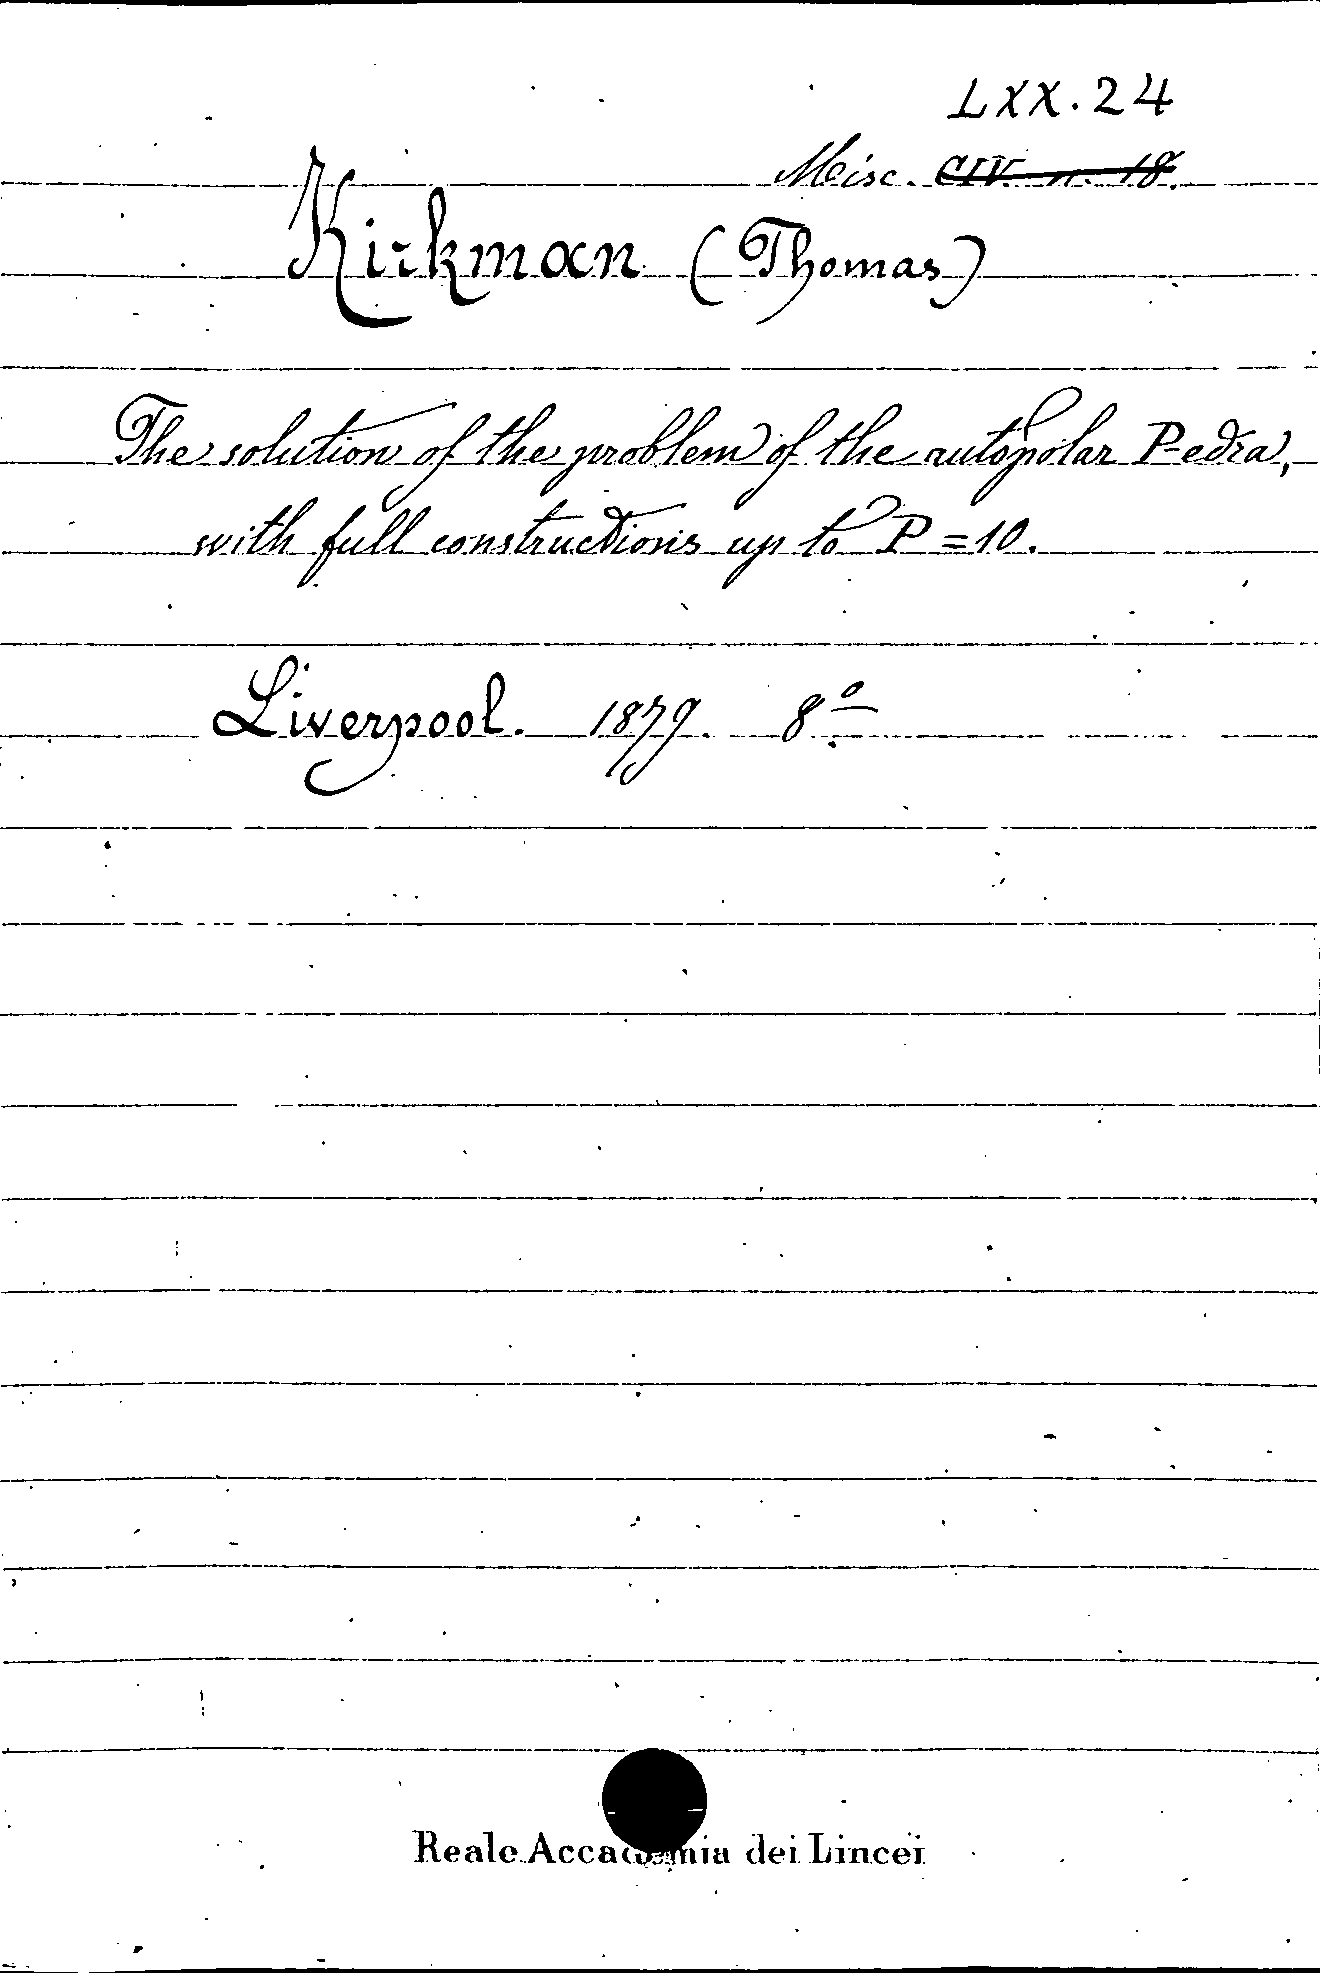 LXX. 24
Misc. CIV. n. 18.
Kirkman (Thomas)
The solution of the problem of the autopolar P-edra,
with full constructions up to P = 10.
Liverpool. 1879. 8º
Reale Accademia dei Lincei